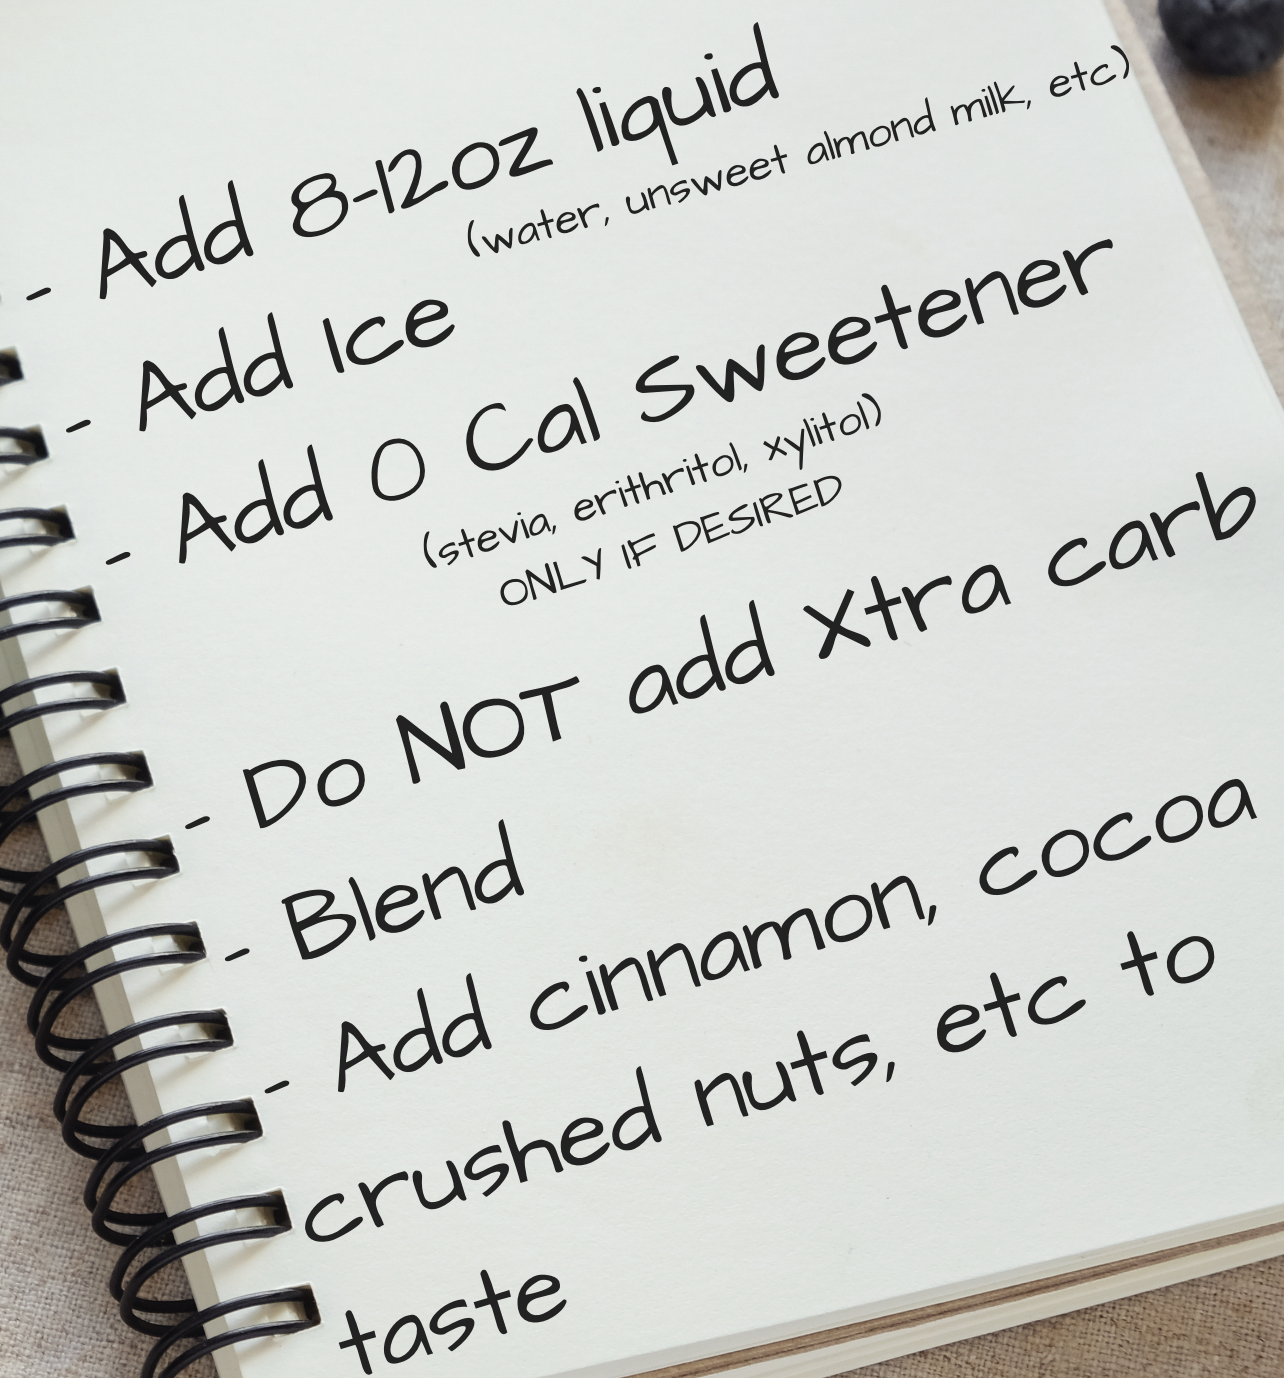 - Add 8-12oz liquid
(water, unsweet almond milk, etc)
- Add Ice
- Add 0 Cal Sweetener
(stevia, erithritol, xylitol)
ONLY IF DESIRED
- Do NOT add Xtra carb
- Blend
- Add cinnamon, cocoa
crushed nuts, etc to
taste